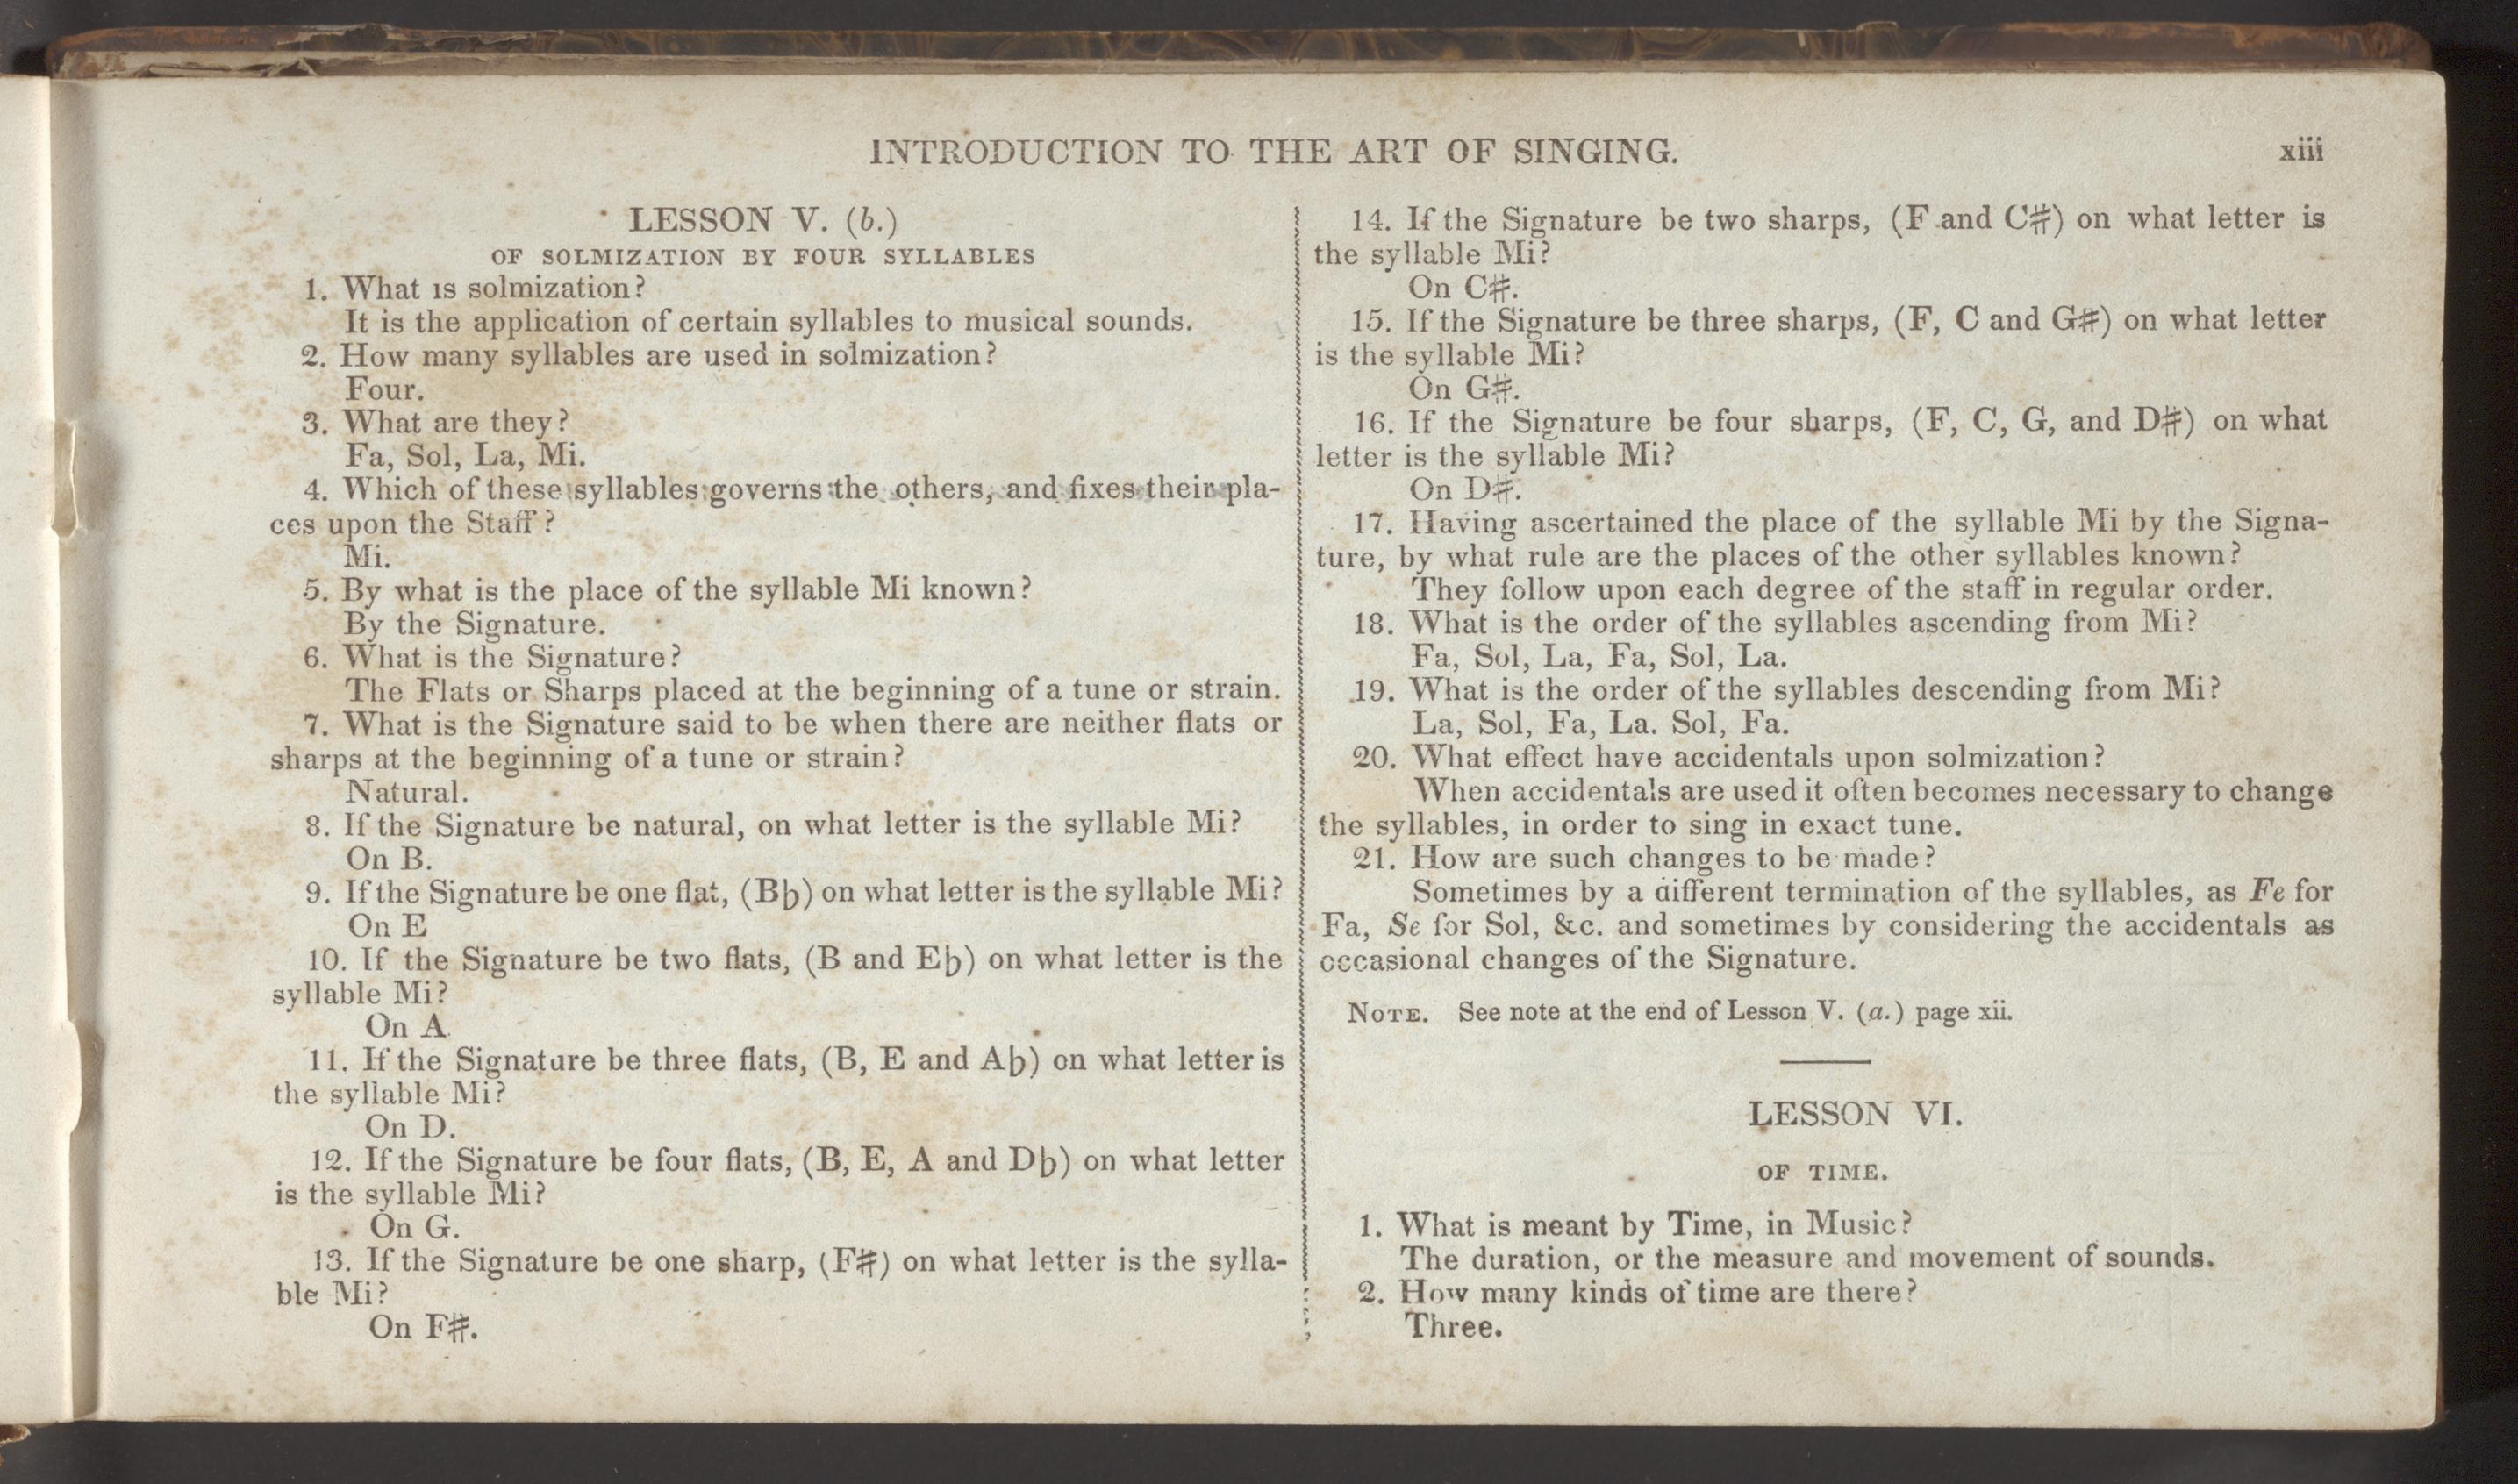 INTRODUCTION TO THE ART OF SINGING.
xiii
LESSON V. (b.)
OF SOLMIZATION BY FOUR SYLLABLES
1. What is solmization?
It is the application of certain syllables to musical sounds.
2. How many syllables are used in solmization?
Four.
3. What are they?
Fa, Sol, La, Mi.
4. Which of these syllables governs the others, and fixes their pla-
ces upon the Staff?
Mi.
5. By what is the place of the syllable Mi known?
By the Signature.
6. What is the Signature?
The Flats or Sharps placed at the beginning of a tune or strain.
7. What is the Signature said to be when there are neither flats or
sharps at the beginning of a tune or strain?
Natural.
8. If the Signature be natural, on what letter is the syllable Mi?
On B.
9. If the Signature be one flat, (B♭) on what letter is the syllable Mi?
On E
10. If the Signature be two flats, (B and E♭) on what letter is the
syllable Mi?
On A
11. If the Signature be three flats, (B, E and A♭) on what letter is
the syllable Mi?
On D.
12. If the Signature be four flats, (B, E, A and D♭) on what letter
is the syllable Mi?
On G.
13. If the Signature be one sharp, (F♯) on what letter is the sylla-
ble Mi?
On F♯.
14. If the Signature be two sharps, (F and C♯) on what letter is
the syllable Mi?
On C♯.
15. If the Signature be three sharps, (F, C and G♯) on what letter
is the syllable Mi?
On G♯.
16. If the Signature be four sharps, (F, C, G, and D♯) on what
letter is the syllable Mi?
On D♯.
17. Having ascertained the place of the syllable Mi by the Signa-
ture, by what rule are the places of the other syllables known?
They follow upon each degree of the staff in regular order.
18. What is the order of the syllables ascending from Mi?
Fa, Sol, La, Fa, Sol, La.
19. What is the order of the syllables descending from Mi?
La, Sol, Fa, La. Sol, Fa.
20. What effect have accidentals upon solmization?
When accidentals are used it often becomes necessary to change
the syllables, in order to sing in exact tune.
21. How are such changes to be made?
Sometimes by a different termination of the syllables, as Fe for
Fa, Se for Sol, &c. and sometimes by considering the accidentals as
occasional changes of the Signature.
NOTE. See note at the end of Lesson V. (a.) page xii.
LESSON VI.
OF TIME.
1. What is meant by Time, in Music?
The duration, or the measure and movement of sounds.
2. How many kinds of time are there?
Three.